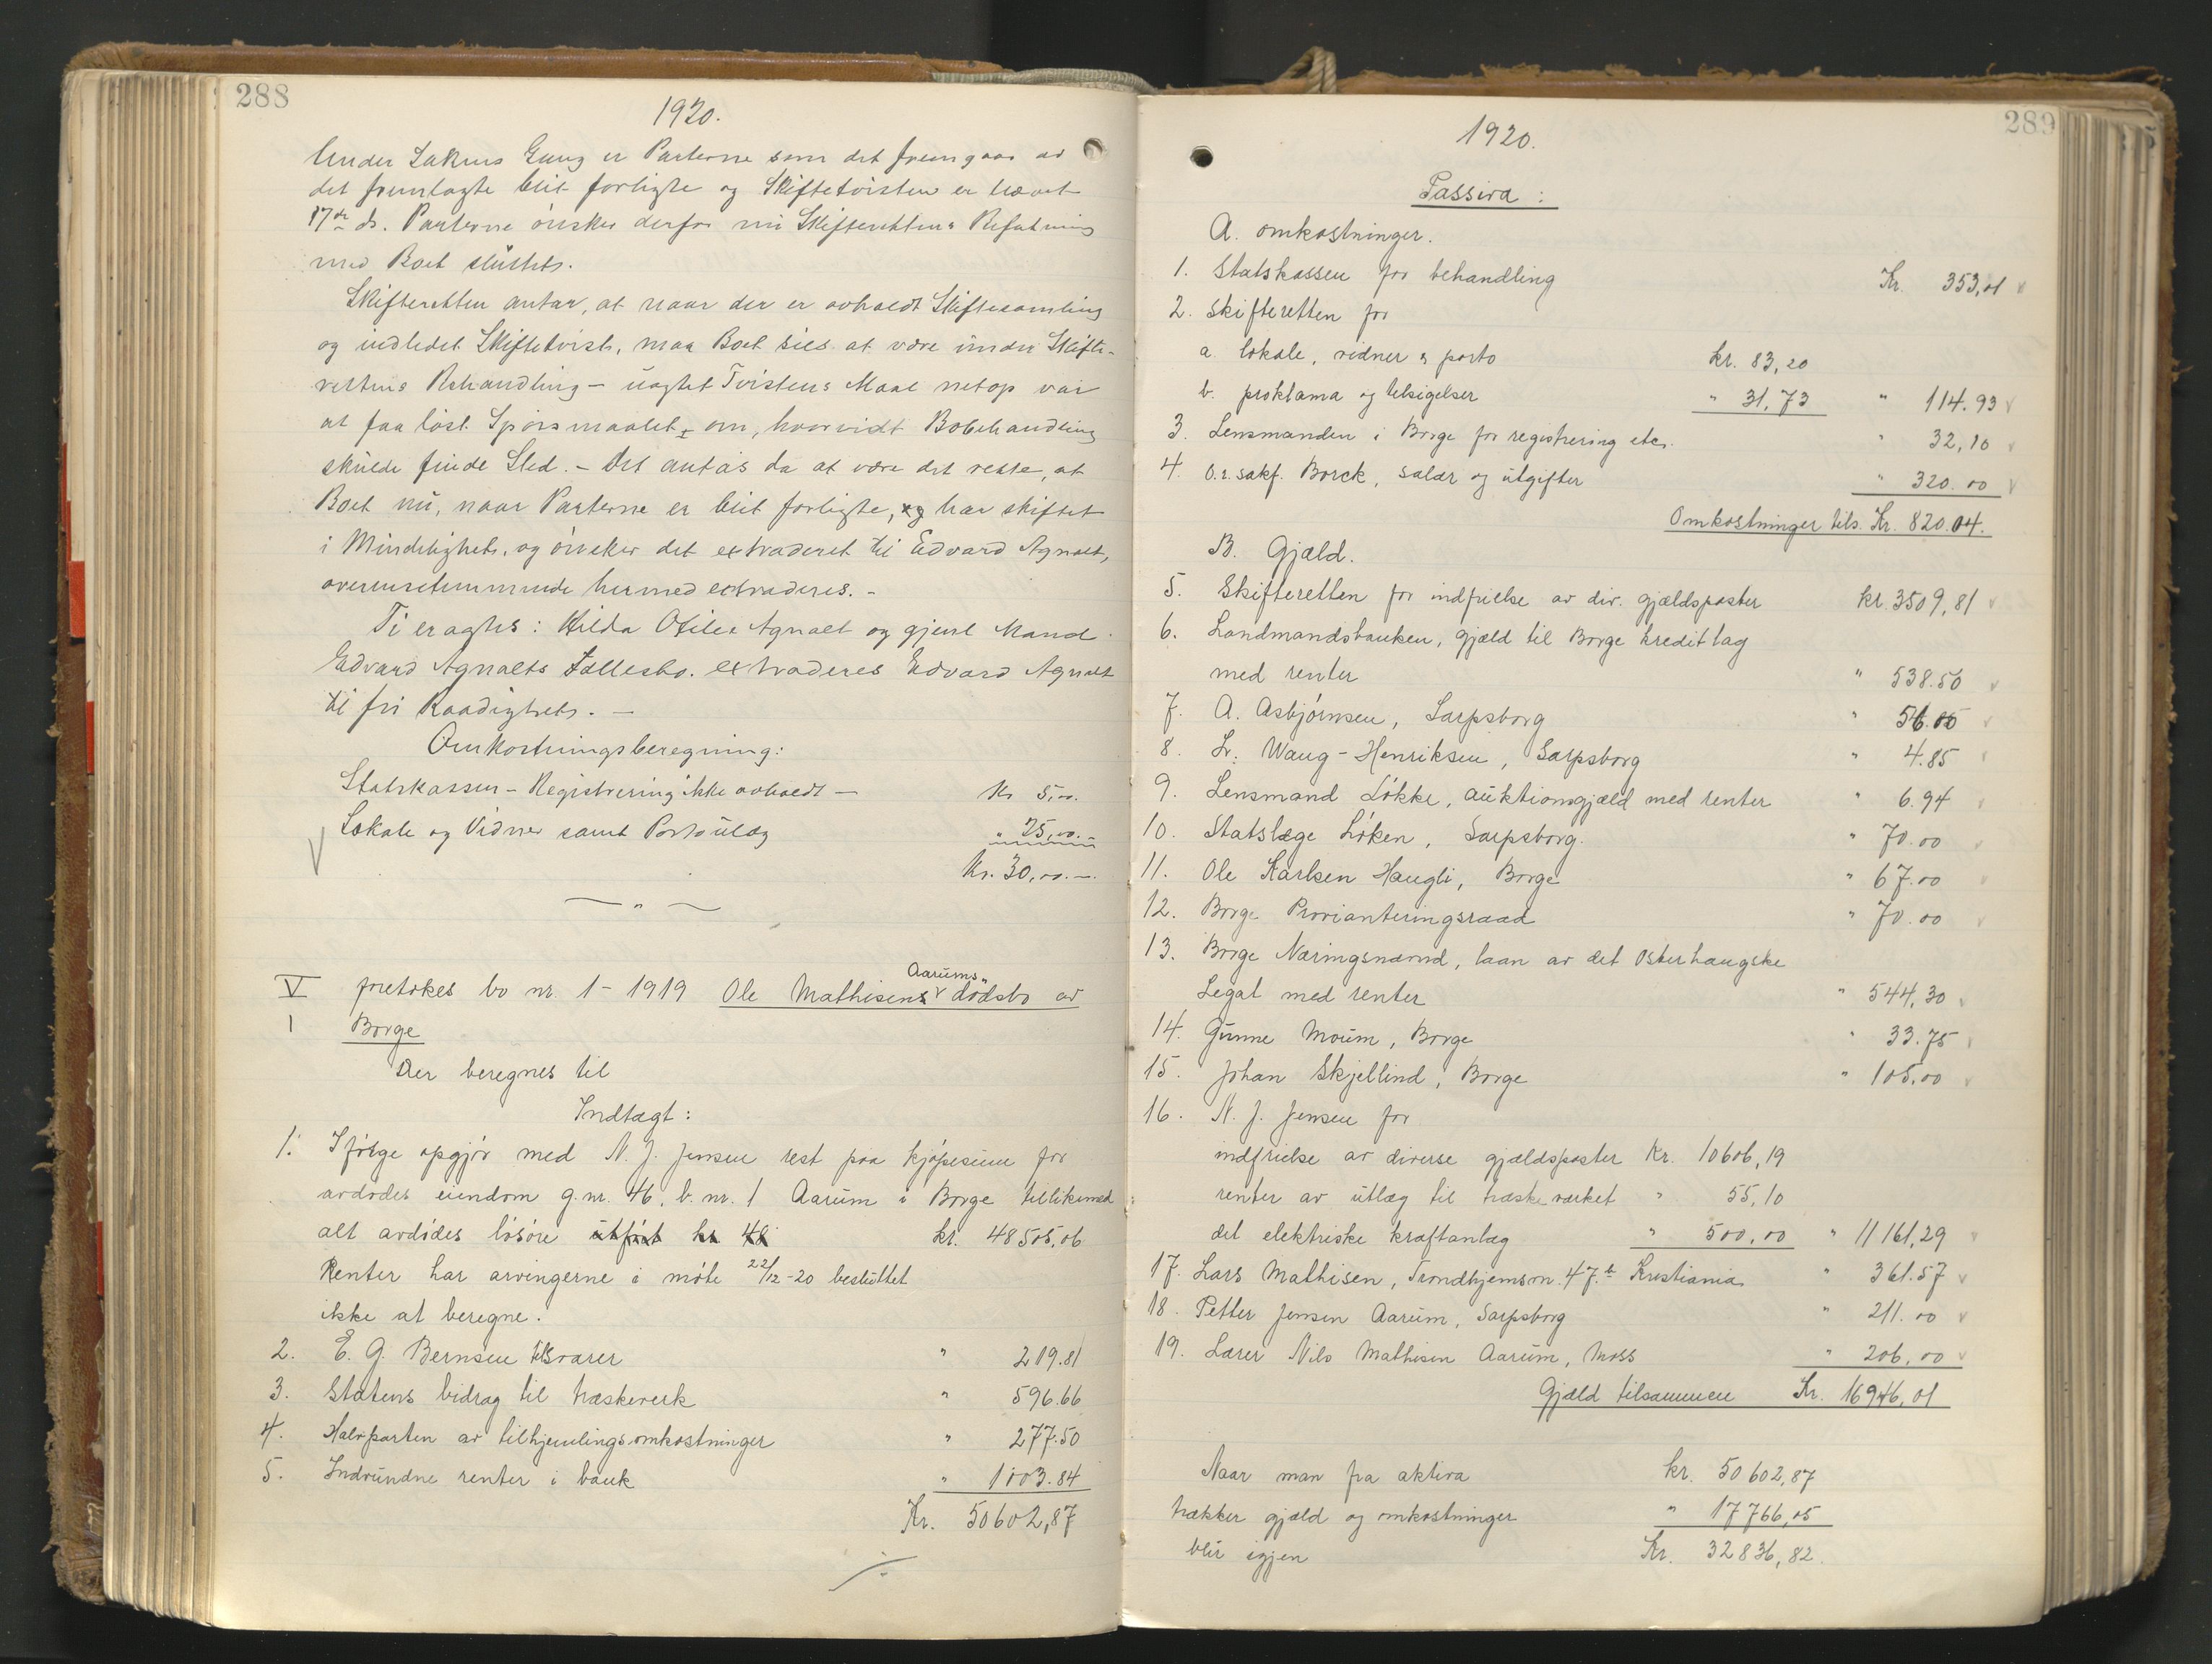 288
1920.
Under Sakens Gang er Parterne som det fremgaar av
det fremlagte blit forligte og Skiftetvisten er hævet
17de ds. Parterne ønsker derfor nu Skifterettens Befatning
med Boet sluttet.
Skifteretten antar, at naar der er avholdt Skiftesamling
og indledet Skiftetvist, maa Boet sies at være under Skifte-
rettens Behandling – uagtet Tvistens Maal netop var
at faa løst Spørsmaalet om, hvorvidt Bobehandling
skulde finde Sted. – Det antas da at være det rette, at
Boet nu, naar Parterne er blit forligte, og har skiftet
i Mindelighet, og ønsker det extraderet til Edvard Agnalt,
overensstemmende hermed extraderes. –
Ti eragtes: Hilda Otilie Agnalt og gjenl. Mand
Edvard Agnalts Fællesbo extraderes Edvard Agnalt
til fri Raadighet. –
Omkostningsberegning:
Statskassen – Registrering ikke avholdt – Kr 5,00.
Lokale og Vidner samt Portoutlæg " 25,00.–
Kr. 30,00.–
— " —
V foretokes bo nr. 1 – 1919 Ole Mathisens Aarums dødsbo av
1 Borge
Der beregnes til
Indtægt:
1. Ifølge opgjør med N. J. Jensen rest paa kjøpesum for
avdødes eiendom g.nr. 46, b.nr. 1 Aarum i Borge tillikemed
alt avdødes løsøre utført kr 48 kr. 48505,06
Renter har arvingerne i møte 22/12-20 besluttet
ikke at beregne.
2. E. G. Bernsen tilsvarer " 219.81
3. Statens bidrag til træskeverk " 596.66
4. Halvparten av tilhjemlingsomkostninger " 277.50
5. Indvundne renter i bank " 1003.84
Kr. 50602,87
289
1920.
Passiva:
A. omkostninger.
1. Statskassen for behandling Kr. 353,01
2. Skifteretten for
a. lokale, vidner & porto kr. 83,20
b. proklama og tilsigelser " 31,73 " 114.93
3. Lensmanden i Borge for registrering etc. " 32,10
4. O.r.sakf. Borck, salær og utgifter " 320.00
Omkostninger tils. Kr. 820.04.
B. Gjæld.
5. Skifteretten for indfrielse av div. gjældsposter kr. 3509,81
6. Landmandsbanken, gjæld til Borge kreditlag
med renter " 538.50
7. A. Asbjørnsen, Sarpsborg "
8. Fr. Waug-Henriksen, Sarpsborg " 4.85
9. Lensmand Løkke, auktionsgjæld med renter " 6.94
10. Statslæge Løken, Sarpsborg. " 70.00
11. Ole Karlsen Haugli, Borge " 67.00
12. Borge Provianteringsraad " 70.00
13. Borge Næringsnævnd, laan av det Osterhaugske
Legat med renter " 544,30
14. Gunne Moum, Borge " 33.75
15. Johan Skjellind, Borge " 105,00
16. N. J. Jensen for
indfrielse av diverse gjældsposter Kr. 10606,19
renter av utlæg til træskeværket " 55,10
det elektriske kraftanlæg " 500,00 " 11161,29
17. Lars Mathisen, Trondhjemsvn. 47.b Kristiania " 361.57
18. Petter Jensen Aarum, Sarpsborg " 211.00
19. Lærer Nils Mathisen Aarum, Moss " 206,00
Gjæld tilsammen Kr. 16946,01
Naar man fra aktiva kr. 50602,87
trækker gjæld og omkostninger " 17766,05
blir igjen Kr. 32836,82.